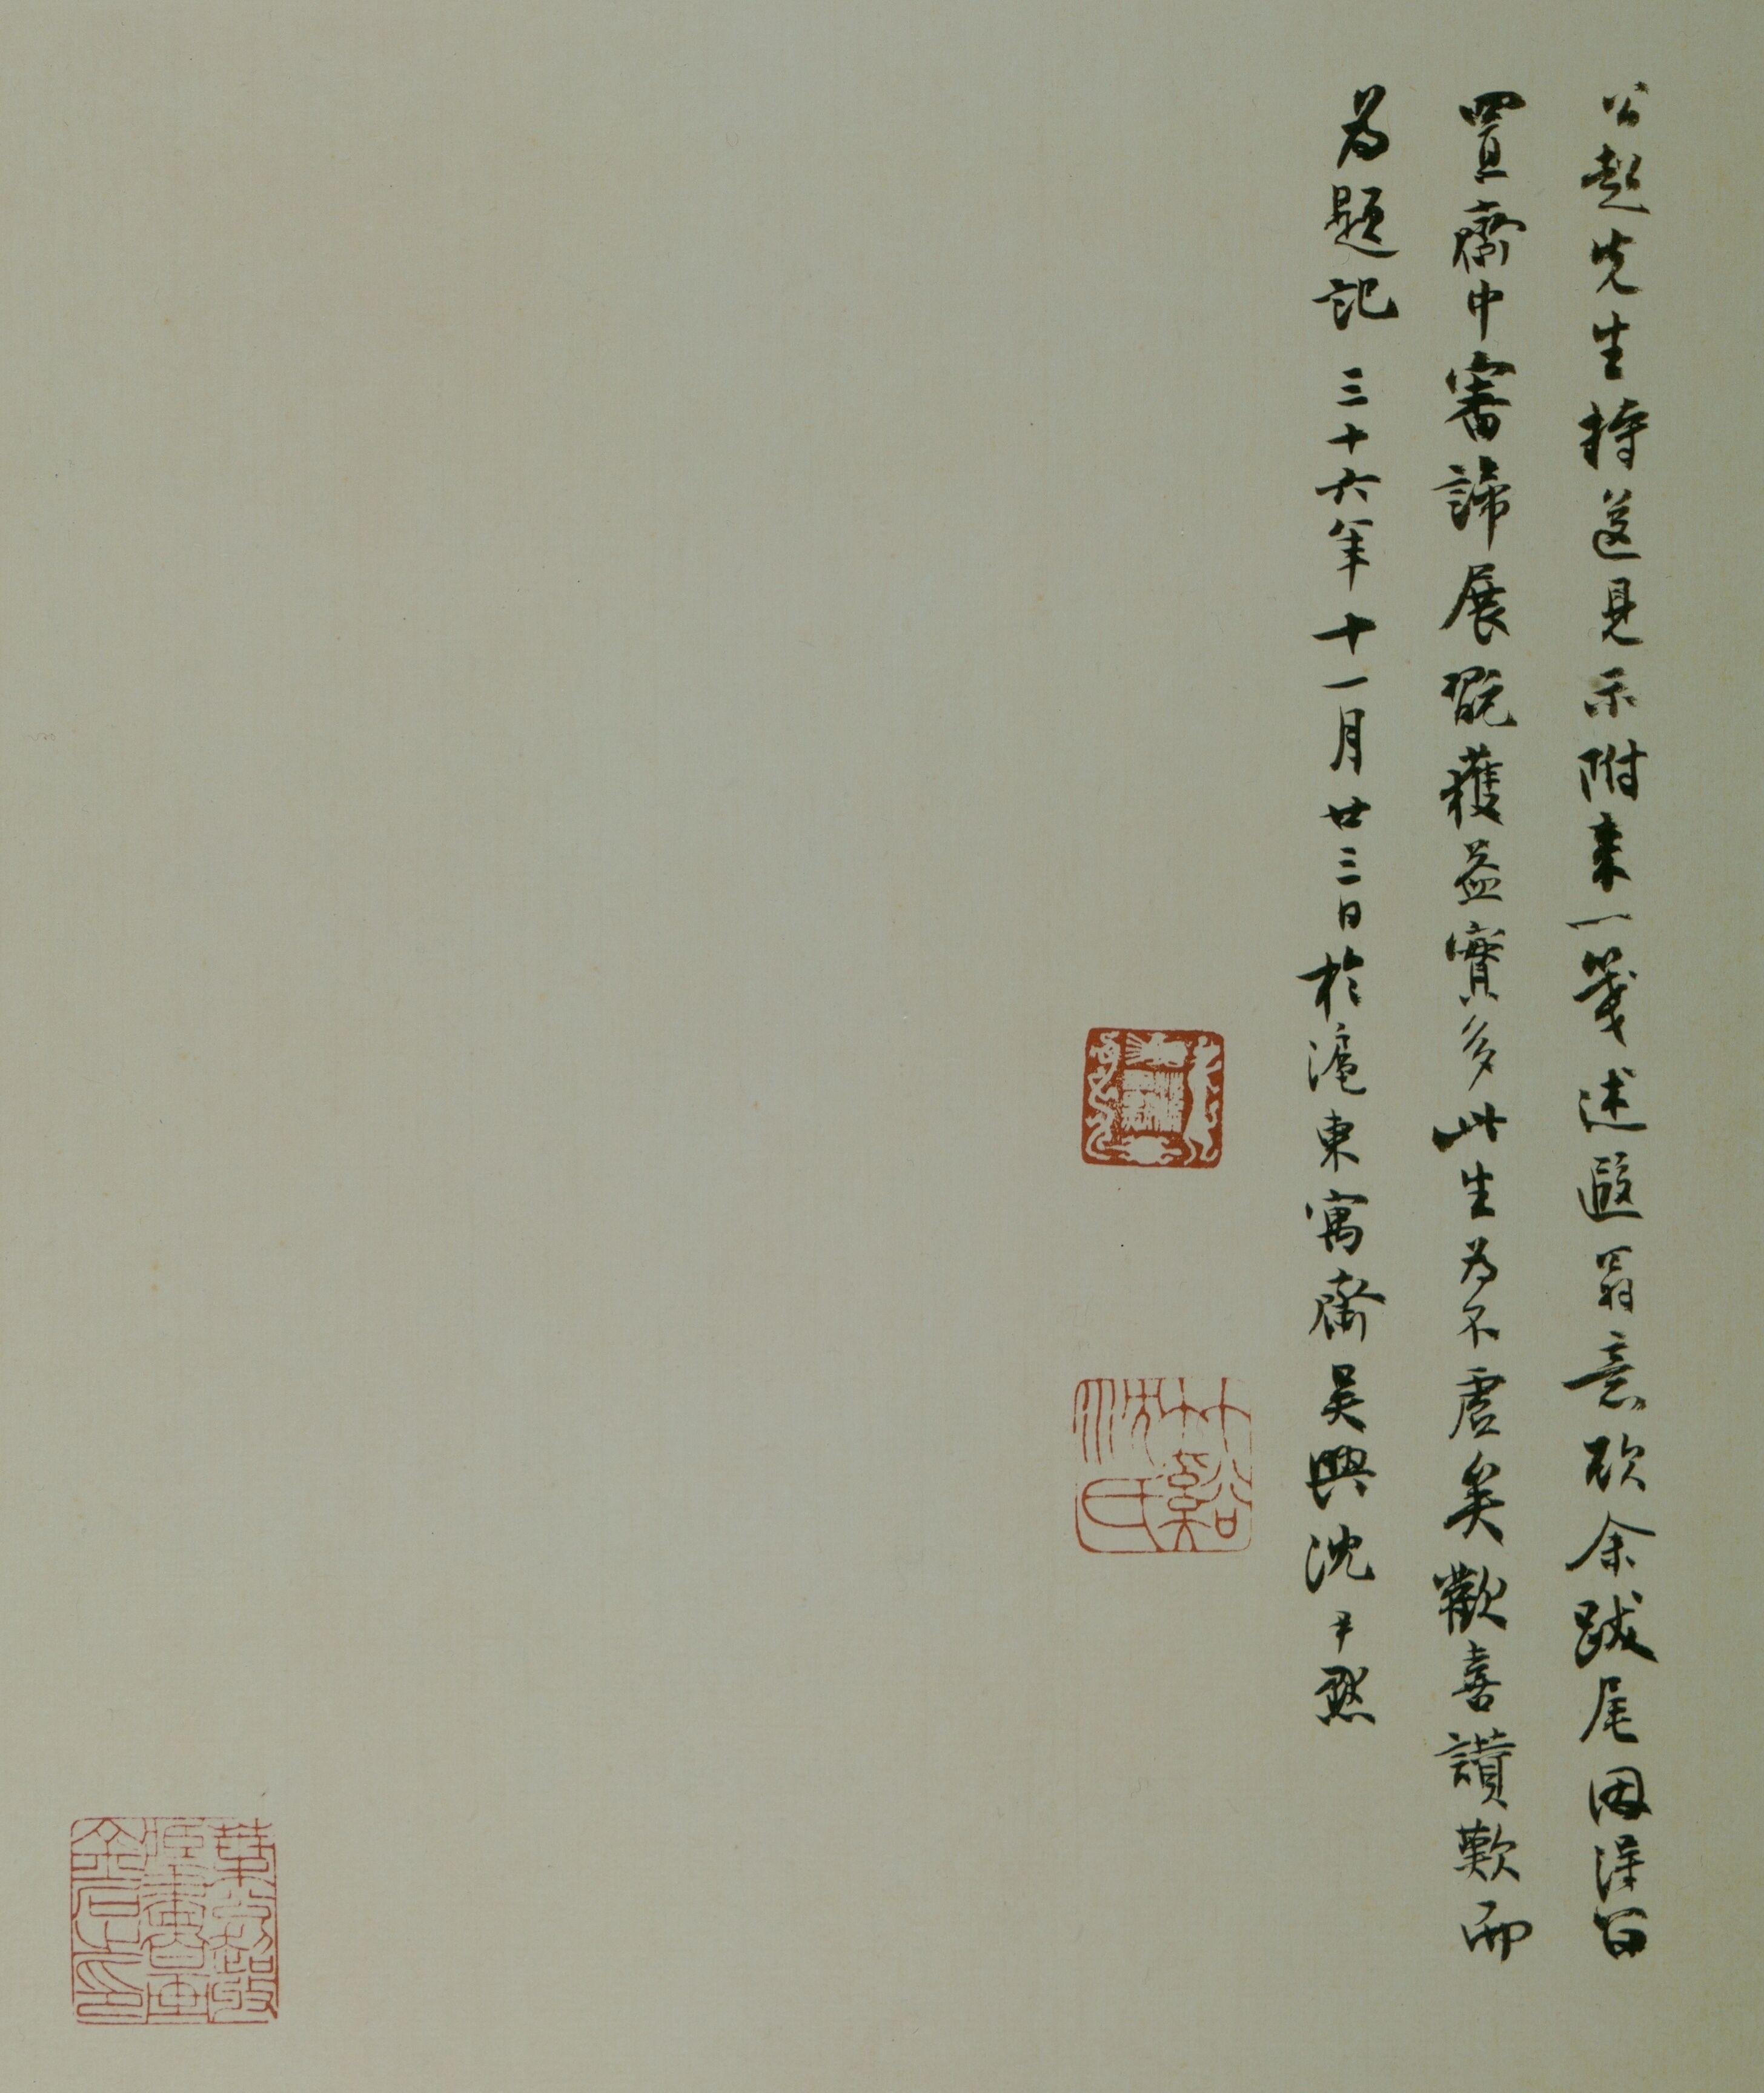 公超先生持送見示附來一箋述遐翁意欲余跋尾因得留
置齋中審諦展翫獲益實多此生為不虛矣歡喜讚歎而
為題記 三十六年十一月廿三日於滬東寓齋吳興沈尹默
竹谿沈氏